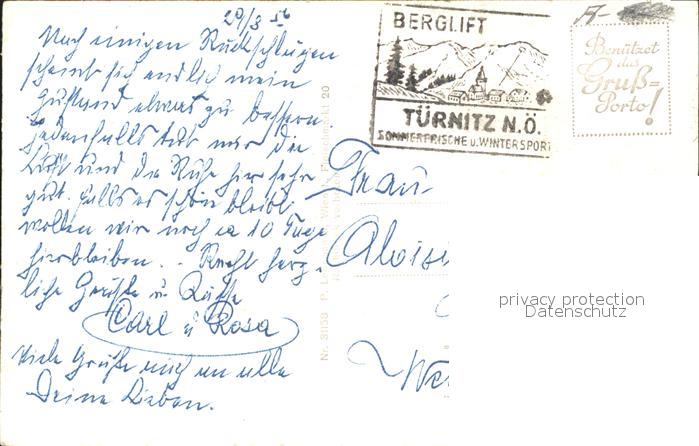 29/8 56
Nach einigen Rückschlägen
scheint sich endlich mein
Zustand etwas zu bessern
jedenfalls tut mir die
Luft und die Ruhe hier sehr
gut. falls es schön bleibt
wollen wir noch ca 10 Tage
hierbleiben. - Recht herz-
liche Grüße u. Küsse
Carl u Rosa
Viele Grüße auch an alle
Deine Lieben.
BERGLIFT
TÜRNITZ N.Ö.
SOMMERFRISCHE U. WINTERSPORT
Benützet
das
Gruß=
Porto!
Frau
Alois
We
privacy protection
Datenschutz